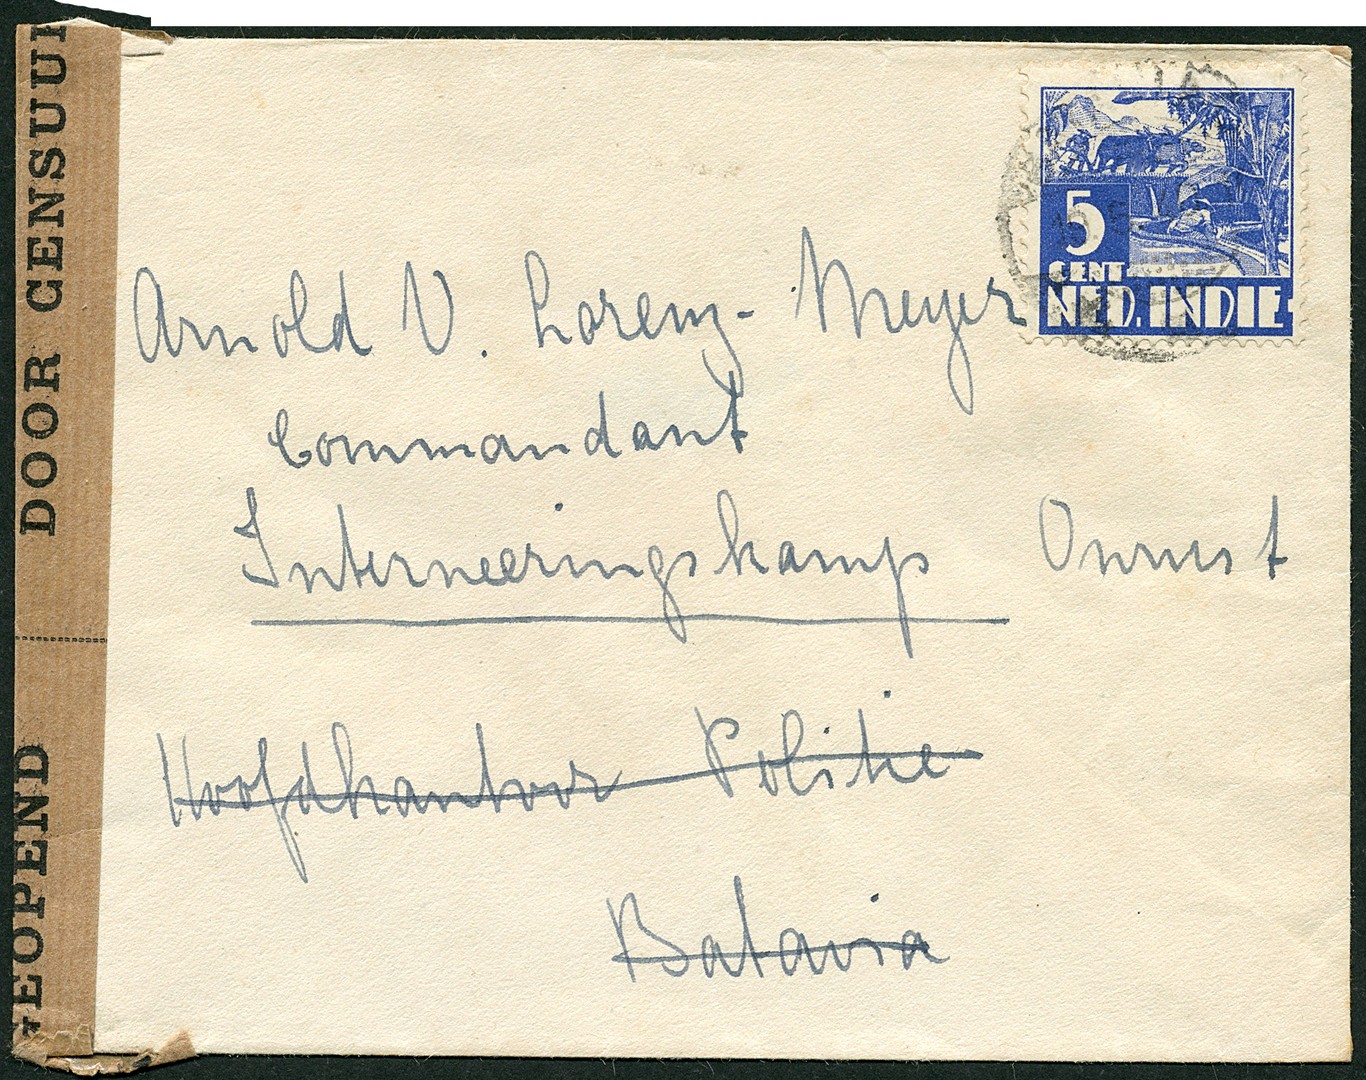 DOOR CENSUUR
EOPEND
5
CENT
NED. INDIE
Arnold V. Lorenz-Meyer
Commandant
Interneeringskamp Onrust
Hoofdkantoor Politie
Batavia